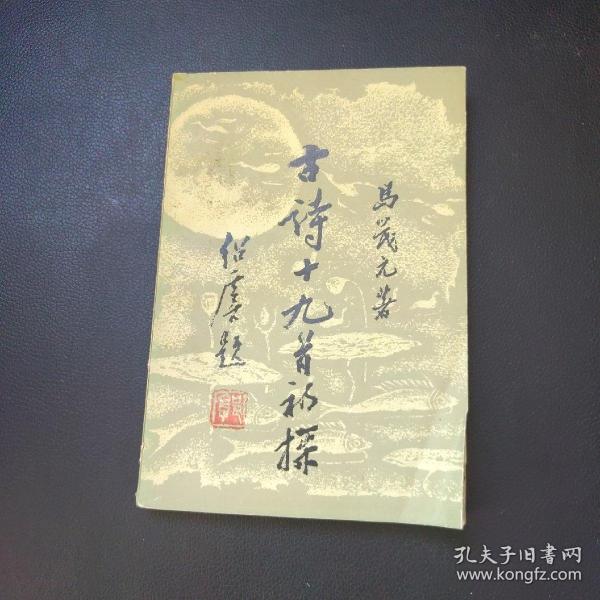 馬茂元著
古诗十九首初探
绍虞题
孔夫子旧书网
www.kongfz.com